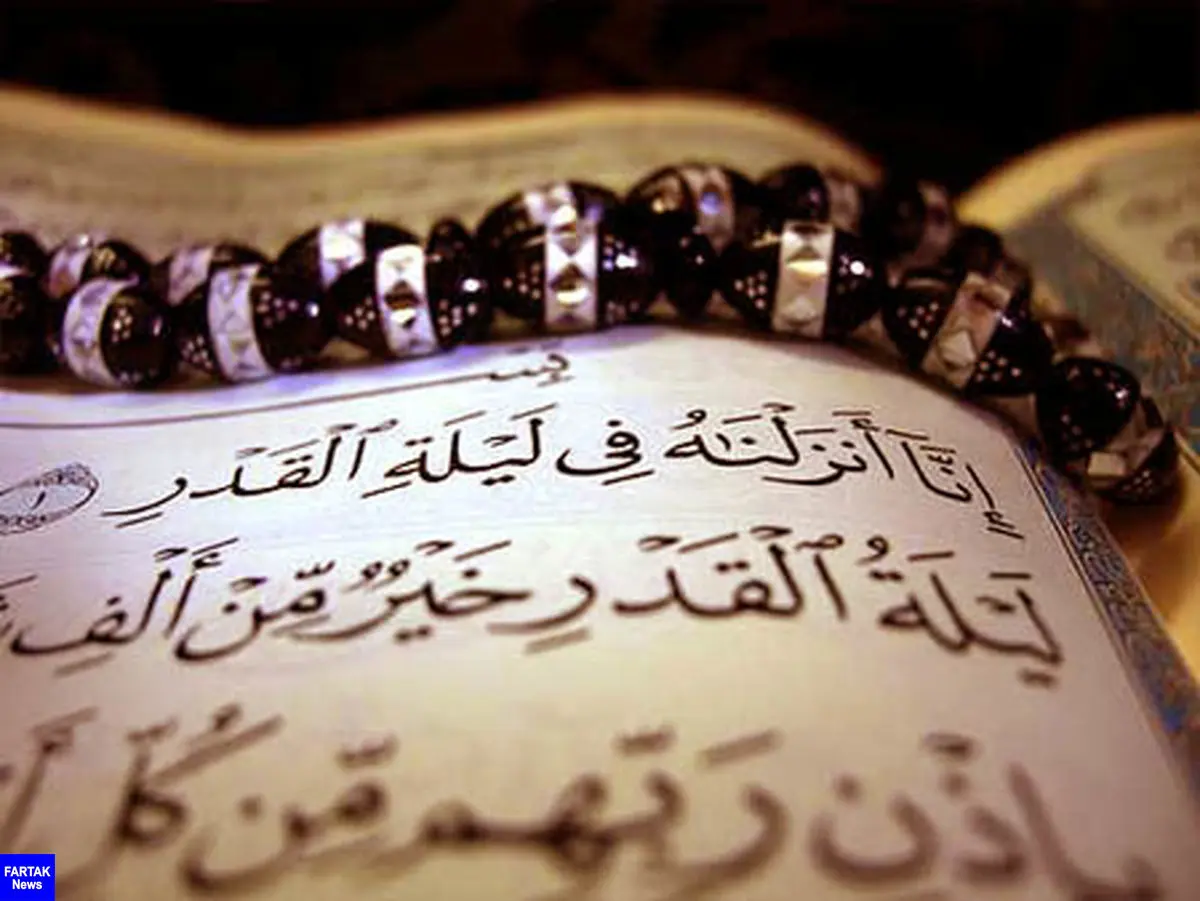 بِسْ
إِنَّآ أَنزَلْنَٰهُ فِى لَيْلَةِ ٱلْقَدْرِ ١
لَيْلَةُ ٱلْقَدْرِ خَيْرٌ مِّنْ أَلْفِ
بِإِذْنِ رَبِّهِم مِّن كُلِّ
FARTAK
News